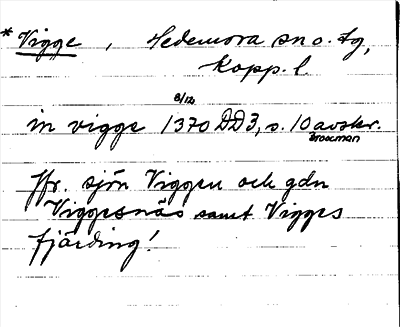 * Vigge, Hedemora sn o. tg,
Kopp. l.
8/12
in vigge 1370 DD 3, s. 10 avskr.
Brocman
Jfr. sjön Viggen och gdn
Viggesnäs samt Vigges
fjärding!